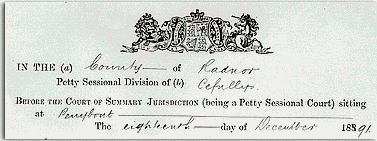 IN THE (a) County of Radnor
Petty Sessional Division of (b) Cefnllys.
BEFORE THE COURT OF SUMMARY JURISDICTION (being a Petty Sessional Court) sitting
at Penybont
The eighteenth day of December 1891.